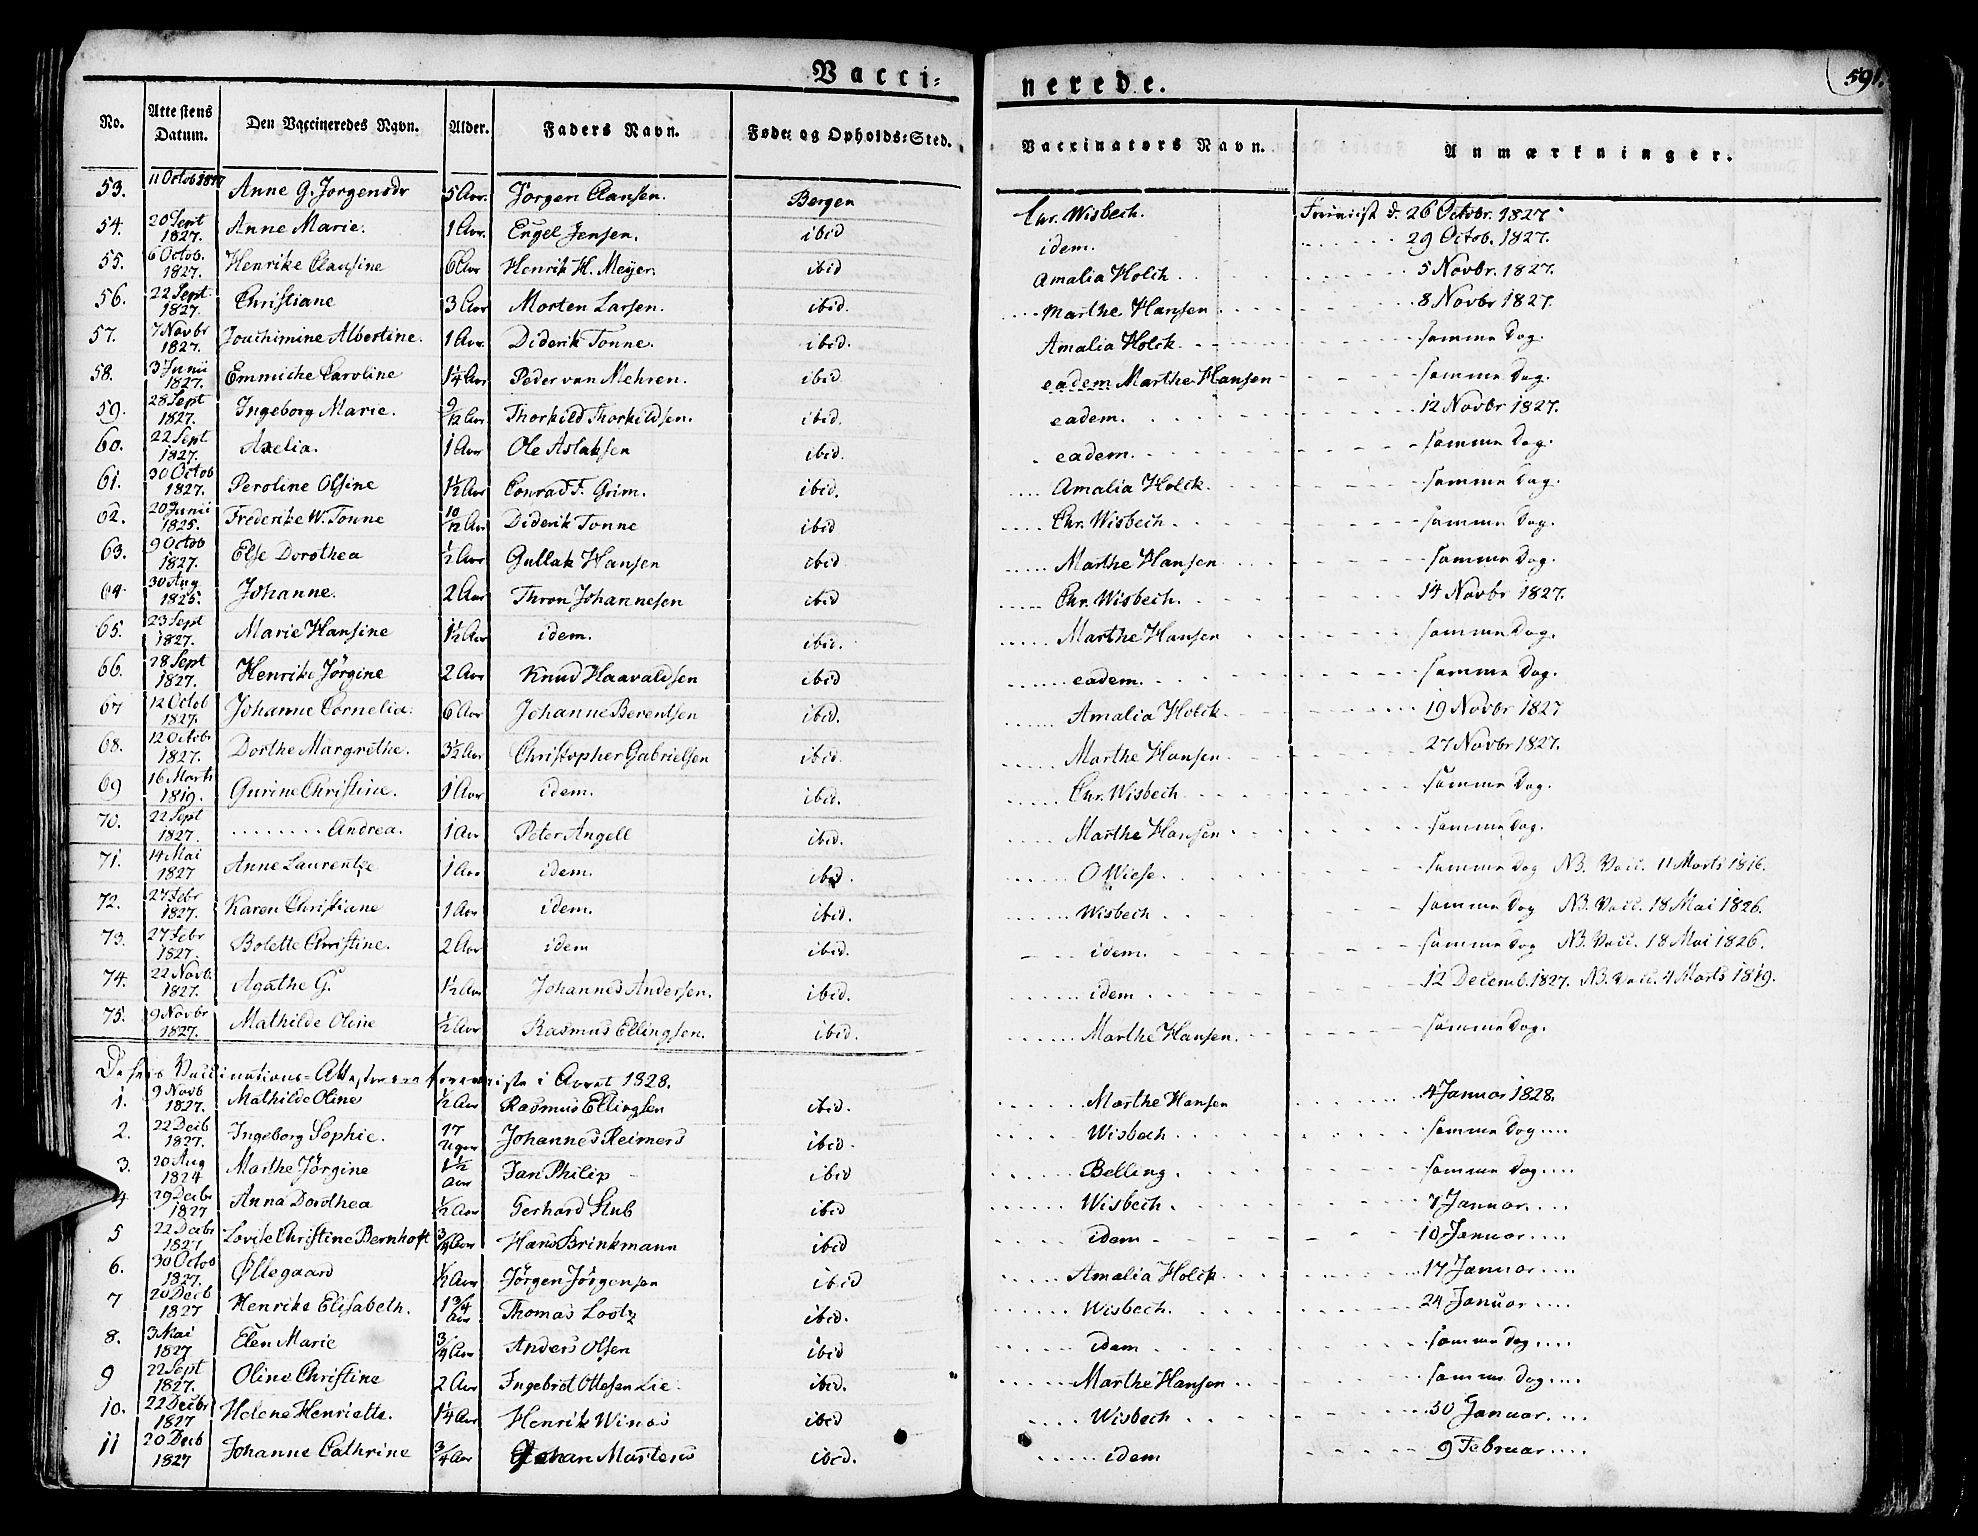 Vacci= nerede. 591.
No. Attestens Datum. Den Vaccineredes Navn. Alder. Faders Navn. Føde= og Opholds=Sted. Vaccinators Navn. Anmærkninger.
53. 11 Octob 1827 Anne G. Jorgensdr 5 Aar. Jørgen Clausen. Bergen Chr. Wisbech. d. 26 Octobr. 1827.
54. 20 Sept 1827. Anne Marie. 1 Aar. Engel Jensen. ibid idem. 29 Octob. 1827.
55. 6 Octob. 1827. Henrike Clausine 6 Aar Henrik H. Meÿer. ibid Amalia Holck 5 Novbr. 1827.
56. 22 Sept. 1827. Christiane 3 Aar Morten Larsen. ibid. Marthe Hansen 8 Novbr 1827.
57. 7 Novbr 1827. Joachimine Albertine. 1 Aar. Diderik Tonne. ibid. Amalia Holck. samme Dag.
58. 3 Junii 1827. Emmiche Caroline 1¼ Aar Peder van Mehren. ibid. eadem Marthe Hansen samme Dag.
59. 28 Sept 1827. Ingeborg Marie. 9/12 Aar. Thorkild Thorkildsen. ibid. eadem. 12 Novbr 1827.
60. 22 Sept 1827. Axelia. 1 Aar Ole Aslaksen ibid. eadem. samme Dag.
61. 30 Octob 1827. Peroline Olsine 1½ Aar Conrad F. Grim. ibid. Amalia Holck samme Dag.
62. 20 Junii 1825. Frederike W. Tonne 10/12 Aar Diderik Tonne ibid Chr. Wisbech samme Dag.
63. 9 Octob 1827. Else Dorothea ½ Aar Gullak Hansen ibid Marthe Hansen samme Dag.
64. 30 Aug 1825. Johanne. 2 Aar Thron Johannesen ibid Chr. Wisbech. 14 Novbr 1827.
65. 23 Sept 1827. Marie Hansine 1½ Aar idem. ibid. Marthe Hansen samme Dag.
66. 28 Sept 1827. Henrike Jørgine 2 Aar Knud Haavaldsen ibid eadem. samme Dag.
67 12 Octob 1827. Johanne Cornelia. 6 Aar Johanne Berentsen ibid. Amalia Holck 19 Novbr 1827
68. 12 Octobr 1827. Dorthe Margrethe. 3½ Aar Christopher Gabrielsen ibid. Marthe Hansen 27 Novbr 1827.
69 16 Marts 1819. Gurine Christine. 1 Aar. idem. ibid. Chr. Wisbech samme Dag.
70. 22 Sept 1827. ........ Andrea. 1 Aar Peter Angell ibid. Marthe Hansen samme Dag.
71. 14 Mai 1827 Anne Laurentze 1 Aar idem. ibid. O Wiese. samme Dag NB. Vacc. 11 Marts 1816.
72. 27 Febr 1827. Karen Christiane 1 Aar idem. ibid. Wisbech samme Dag NB. Vacc. 18 Mai 1826.
73. 27 Febr 1827. Bolette Christine. 2 Aar idem ibid. idem. samme Dag NB. Vacc. 18 Mai 1826.
74. 22 Novb. 1827. Agathe G. 1½ Aar Johannes Andersen. ibid. idem 12 Decemb. 1827. NB. Vacc. 4 Marts 1819.
75. 9 Novbr 1827. Mathilde Oline ½ Aar Rasmus Ellingsen. ibid. Marthe Hansen. samme Dag.
Vaccinations=Attester i Aaret 1828.
1. 9 Novb 1827. Mathilde Oline ½ Aar Rasmus Ellingsen ibid. Marthe Hansen 4 Januar 1828.
2. 22 Decb 1827. Ingeborg Sophie. 17 Uger Johannes Reimers ibid. Wisbech samme Dag....
3. 20 Aug 1824 Marthe Jørgine 1½ Aar Jan Philip ibid Belling. samme Dag....
4 29 Decbr 1827 Anna Dorothea ½ Aar Gerhard Stub ibid Wisbech. 7 Januar....
5 22 Decbr 1827 Lovise Christine Bernhoft ¾ Aar Hans Brinkmann ibid idem 10 Januar....
6. 30 Octob 1827. Øllegaard ½ Aar. Jørgen Jørgensen ibid Amalia Holck 17 Januar....
7 20 Decb 1827 Henrike Elisabeth. 1¾ Aar Thomas Lootz ibid. Wisbech. 24 Januar....
8. 3 Mai 1827 Elen Marie ¾ Aar. Anders Olsen ibid idem samme Dag....
9 22 Sept 1827. Oline Christine 2 Aar Ingebrot Ottesen Lie. ibid. Marthe Hansen samme Dag....
10. 22 Decbr 1827 Helene Henriette. 1¼ Aar Henrik Winæs ibid Wisbech 30 Januar....
11 20 Decb 1827 Johanne Cathrine ¾ Aar Johan Martens ibid. idem 9 Februar....